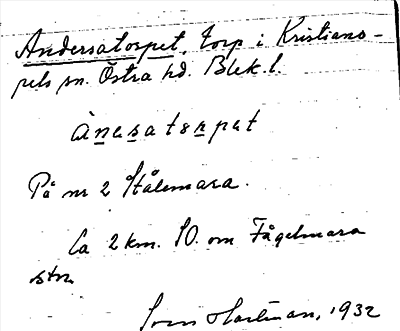 Andersatorpet, torp i Kristiano-
pels sn. Östra hd. Blek. l.
ànəsatorpət
På nr 2 Stålemara.
Ca 2 km. SO. om Fågelmara
stn
Hartman, 1932